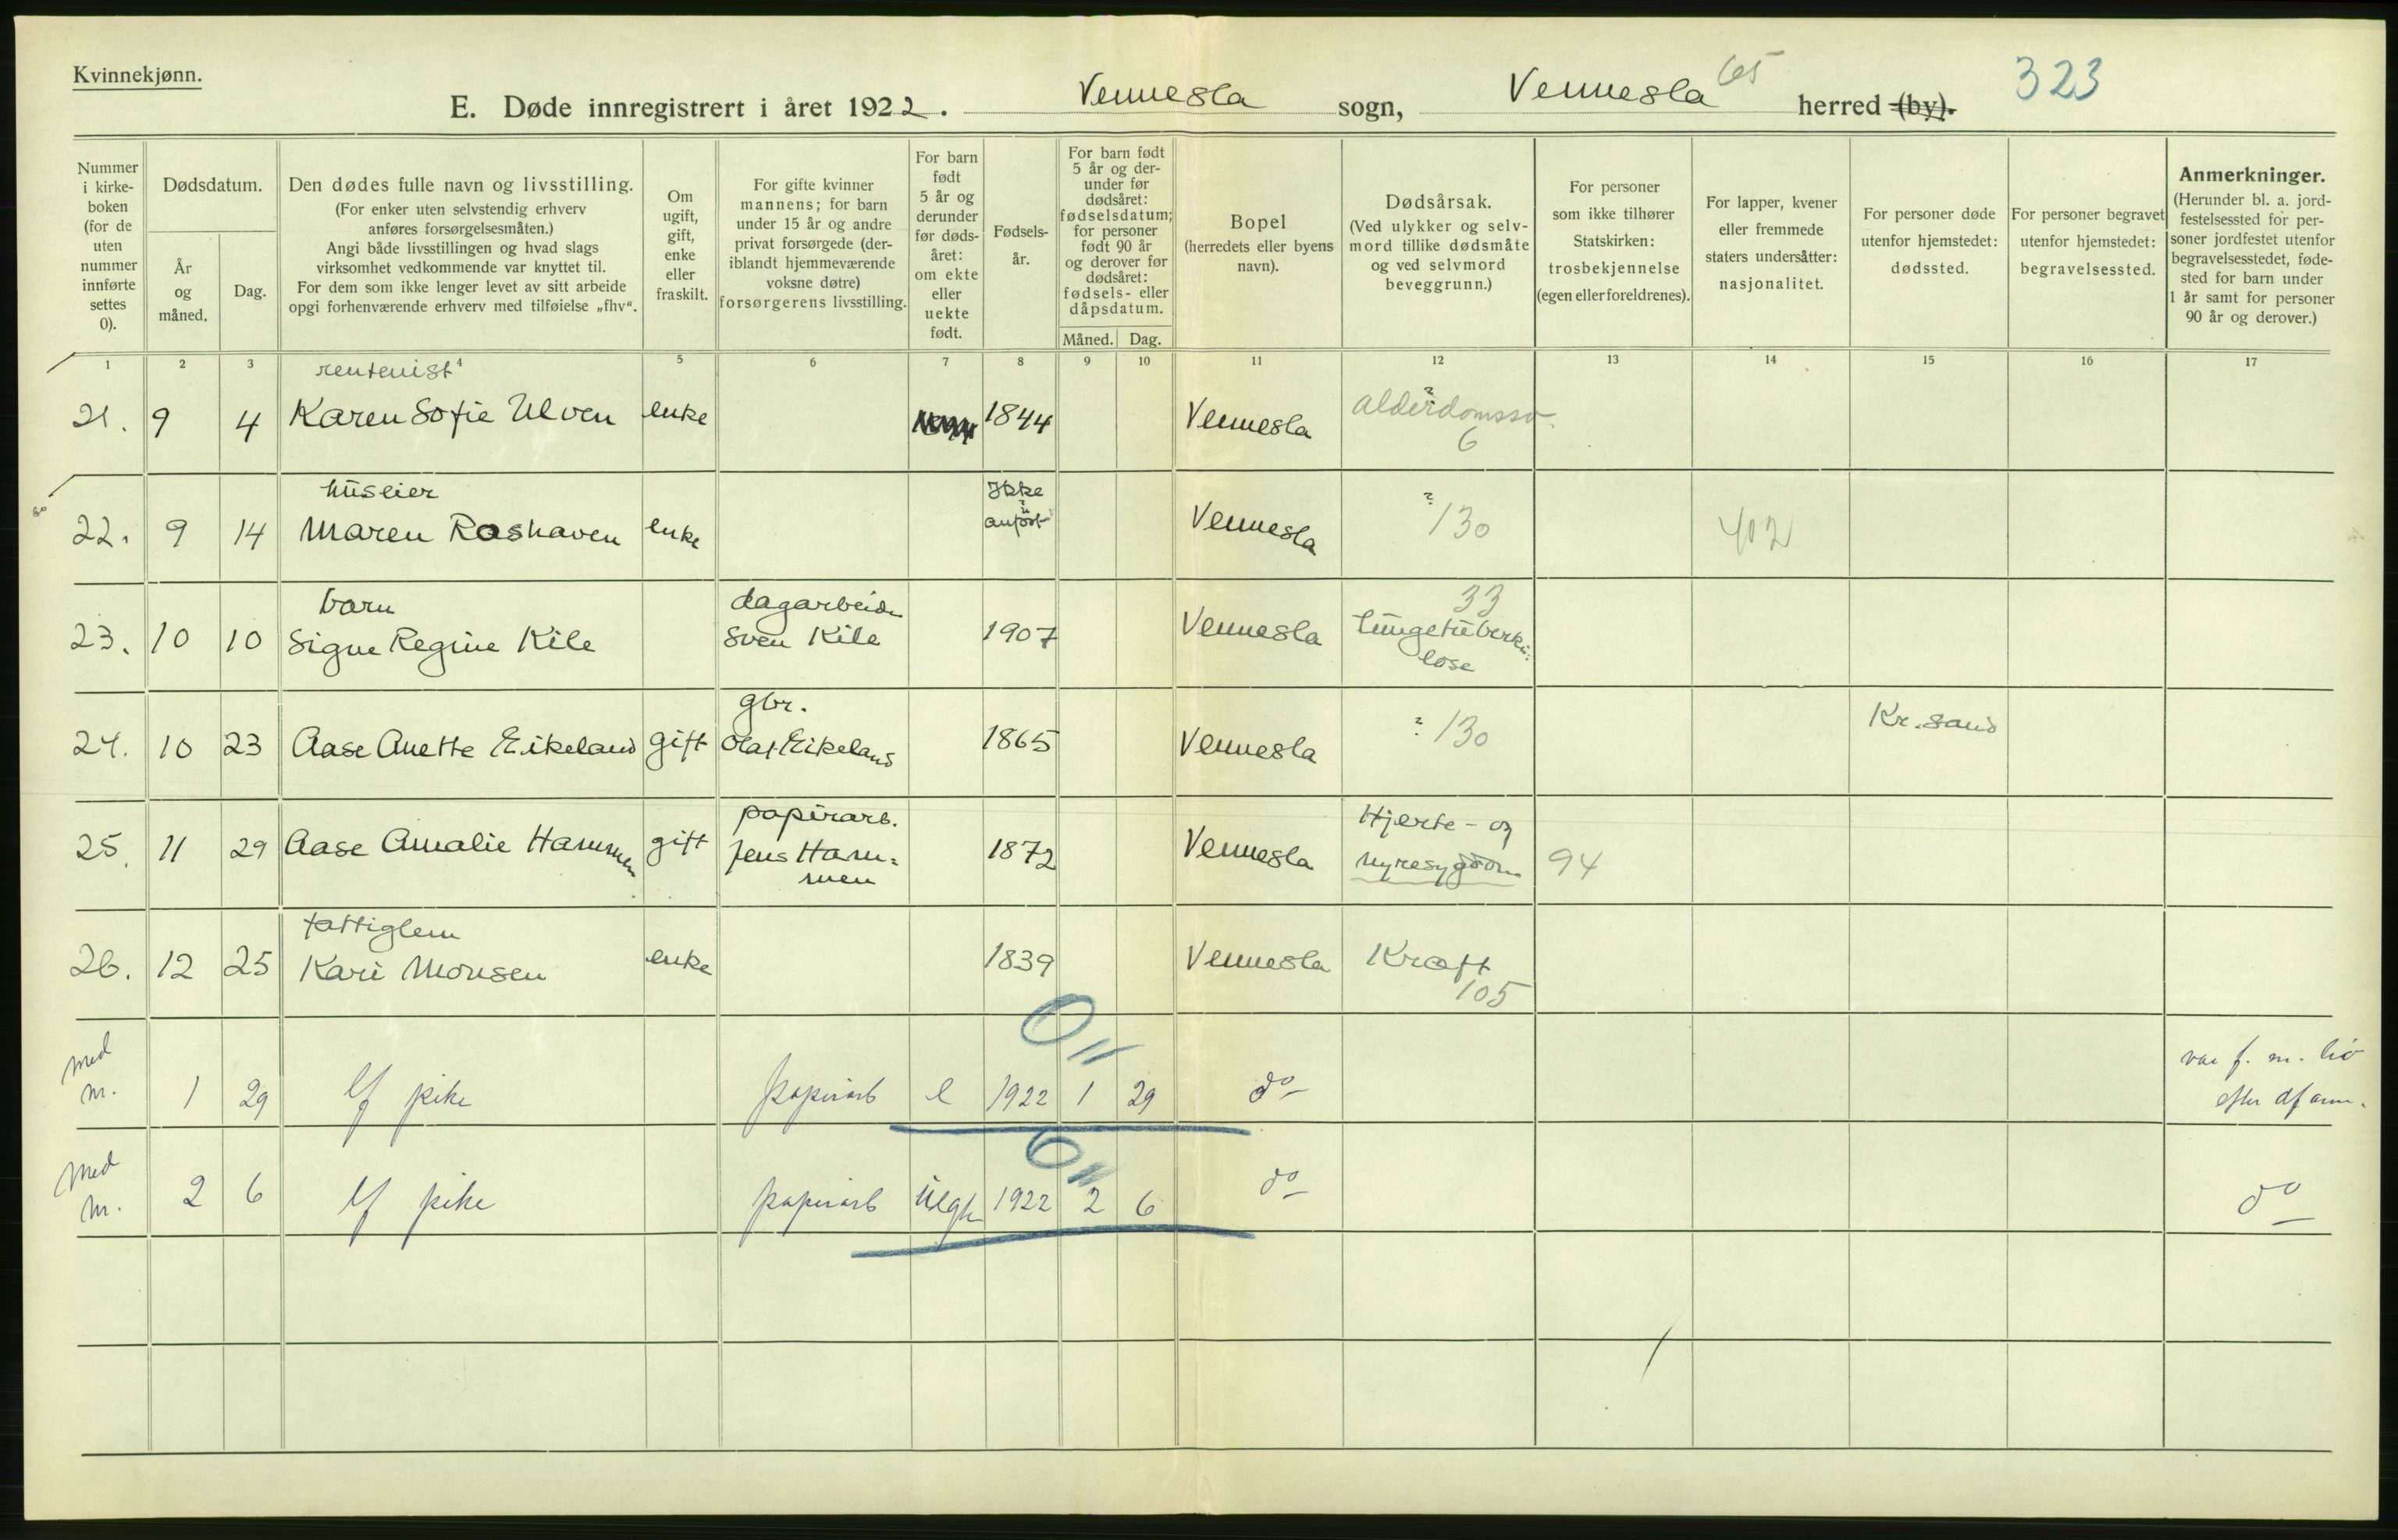 Kvinnekjønn.
E. Døde innregistrert i året 1922. Vennesla sogn, Vennesla 65 herred (by). 323
Nummer i kirke-boken (for de uten nummer innførte settes 0).
Dødsdatum.
År og måned.
Dag.
Den dødes fulle navn og livsstilling.
(For enker uten selvstendig erhverv anføres forsørgelsesmåten.)
Angi både livsstillingen og hvad slags virksomhet vedkommende var knyttet til.
For dem som ikke lenger levet av sitt arbeide opgi forhenværende erhverv med tilføielse „fhv“.
Om ugift, gift, enke eller fraskilt.
For gifte kvinner mannens; for barn under 15 år og andre privat forsørgede (deriblandt hjemmeværende voksne døtre) forsørgerens livsstilling.
For barn født 5 år og derunder før dødsåret: om ekte eller uekte født.
Fødselsår.
For barn født 5 år og derunder før dødsåret: fødselsdatum; for personer født 90 år og derover før dødsåret: fødsels- eller dåpsdatum.
Måned. Dag.
Bopel (herredets eller byens navn).
Dødsårsak.
(Ved ulykker og selvmord tillike dødsmåte og ved selvmord beveggrunn.)
For personer som ikke tilhører Statskirken: trosbekjennelse (egen eller foreldrenes).
For lapper, kvener eller fremmede staters undersåtter: nasjonalitet.
For personer døde utenfor hjemstedet: dødssted.
For personer begravet utenfor hjemstedet: begravelsessted.
Anmerkninger.
(Herunder bl. a. jordfestelsessted for personer jordfestet utenfor begravelsesstedet, fødested for barn under 1 år samt for personer 90 år og derover.)
1 2 3 4 5 6 7 8 9 10 11 12 13 14 15 16 17
rentenist
21. 9 4 Karen Sofie Ulven enke 1844 Vennesla ? alderdomssv. 6
huseier
22. 9 14 Maren Roshaven enke Ikke anført Vennesla ? 130 402
barn dagarbeider 33
23. 10 10 Signe Regine Kile Sven Kile 1907 Vennesla lungetuberku=
lose
gbr.
24. 10 23 Aase Anette Eikeland gift Olaf Eikeland 1865 Vennesla ? 130 Kr.sand
papirarb. Hjerte- og
25. 11 29 Aase Amalie Hammen gift Jens Ham= 1872 Vennesla nyresygdom 94
men
fattiglem
26. 12 25 Kari Monsen enke 1839 Vennesla Kræft
105
med 0 var f. m. liv
nr. 1 29 pike papirarb e 1922 1 29 do efter
Med 0
nr. 2 6 pike papirarb 1922 2 6 do do